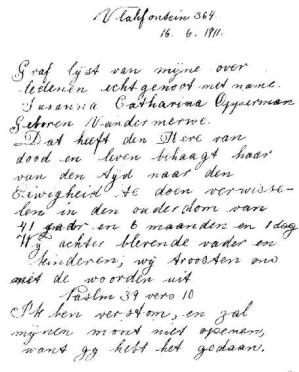 Vlakfontein 364
16. 6. 1911.
Graf lyst van mijne over
ledenen echtgenoot met name.
Susanna Catharina Opperman
Geboren Vandermerwe.
Dat heeft den Here van
dood en leven behaagt haar
van den tyd naar den
Eiwegheid te doen verwisse-
len in den ouderdom van
41 jaar en 6 maanden en 1 dag
Wy achter blerende vader en
kinderen, wy troosten ons
met de woorden uit
Paslm 39 vers 10
Ik ben verstom, en zal
mynen mont niet openen,
want gy hebt het gedaan.